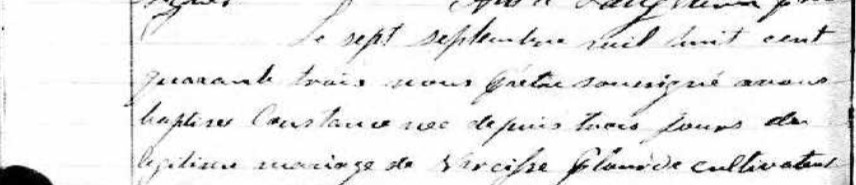 Le sept septembre mil huit cent
quarante trois nous prêtre soussigné avons
baptisé Constance née depuis trois jours du
légitime mariage de Narcisse cultivateur